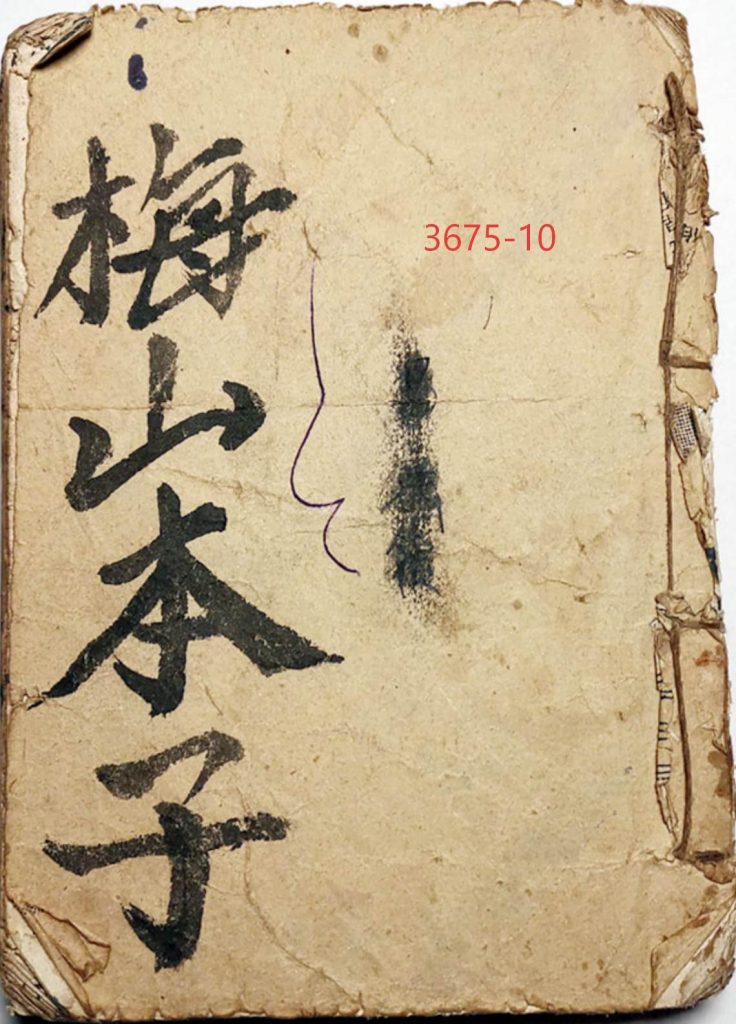 3675-10
梅山本子